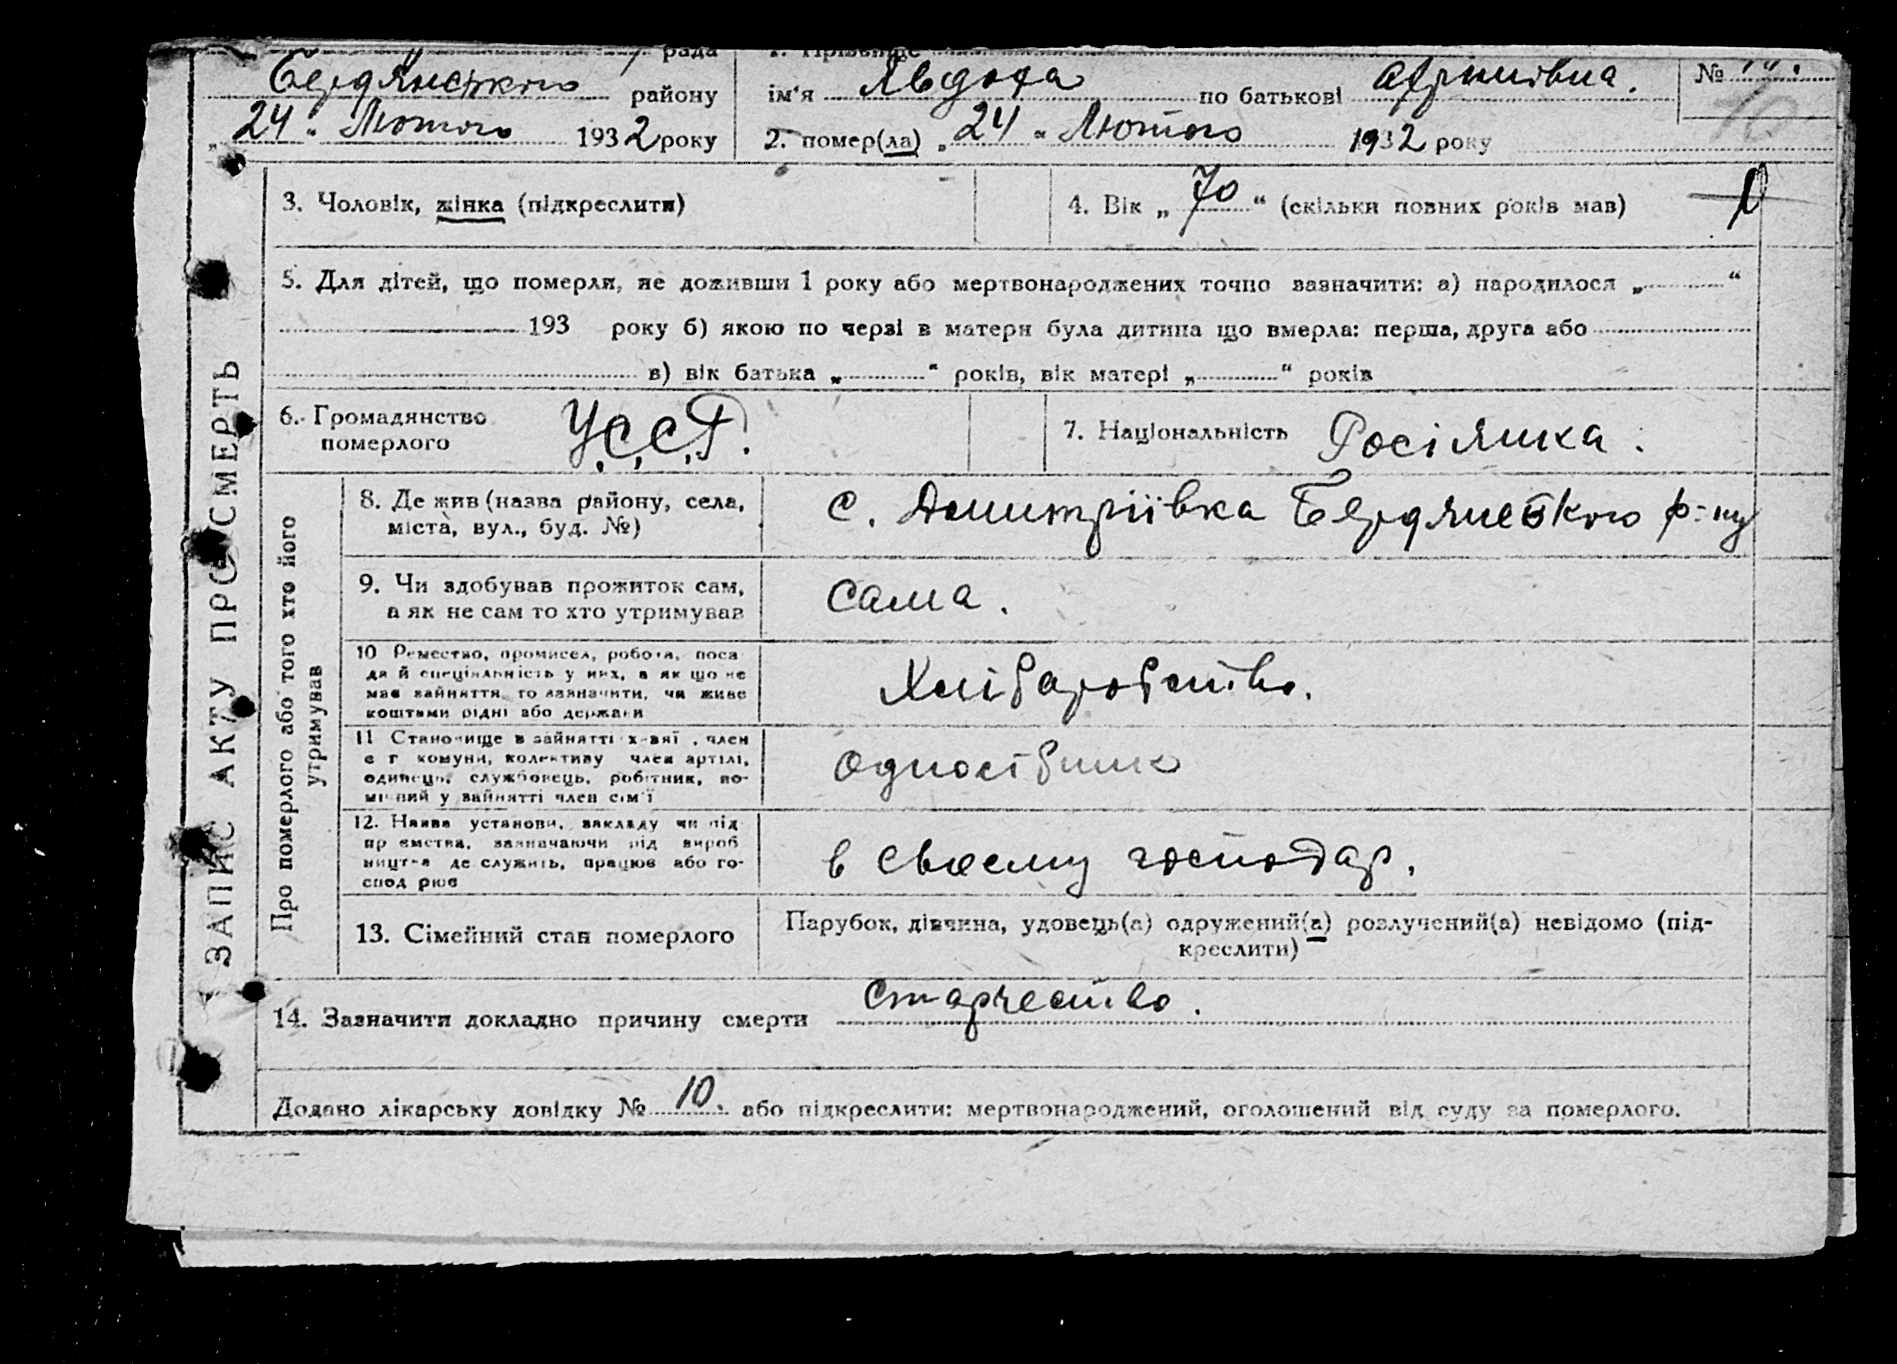 рада
Бердянського району
"24" Лютого 1932 року
ім'я Явдоха по батькові
№
2. помер(ла) "24" Лютого 1932 року
ЗАПИС АКТУ ПРО СМЕРТЬ
3. Чоловік, жінка (підкреслити)
4. Вік „70“ (скільки повних років мав)
5. Для дітей, що померли, не доживши 1 року або мертвонароджених точно зазначити: а) народилося „ “
193 року б) якою по черзі в матери була дитина що вмерла: перша, друга або
в) вік батька „ “ років, вік матері „ “ років
6. Громадянство
померлого
У.С.С.Р.
7. Національність Росіянка.
Про померлого або того хто його
утримував
8. Де жив (назва району, села,
міста, вул., буд. №)
с. Дмитріївка Бердянського р-ну
9. Чи здобував прожиток сам,
а як не сам то хто утримував
Сама.
10 Ремество, промисел, робота, поса
да й спеціяльність у них, а як що не
мав зайняття, то зазначити, чи живе
коштами рідні або держави
Хліборобство.
11 Становище в зайнятті х-зяї , член
с г комуни, колективу член артілі,
одинець, службовець, робітник, по-
мічний у зайнятті член сім'ї
Одноосібник
12. Назва установи, закладу чи під
пр ємства, зазначаючи рід вироб
ництва де служить, працює або го-
спод рює
в своєму господар.
13. Сімейний стан померлого
Парубок, дівчина, удовець(а) одружений(а) розлучений(а) невідомо (під-
креслити)
14. Зазначити докладно причину смерти Старчество.
Додано лікарську довідку № 10. або підкреслити: мертвонароджений, оголошений від суду за померлого.